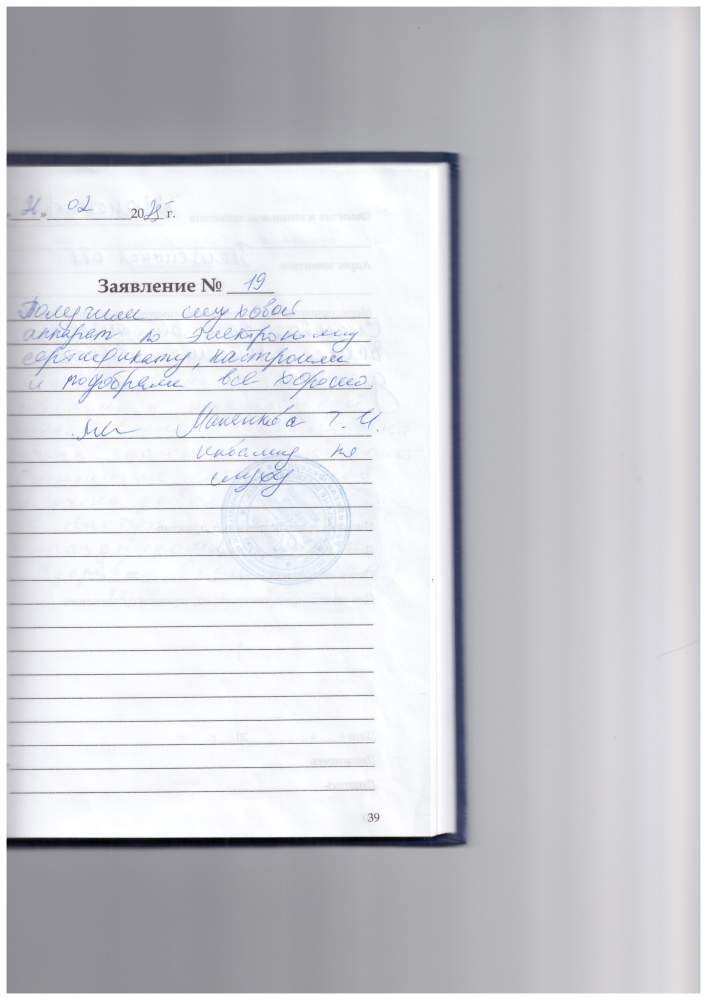 02 20 г.
Заявление № 19
Получили слуховой
аппарат по электронному
сертификату, настроили
и подобрали все хорошо.
Т. И.
инвалид по
слуху
39